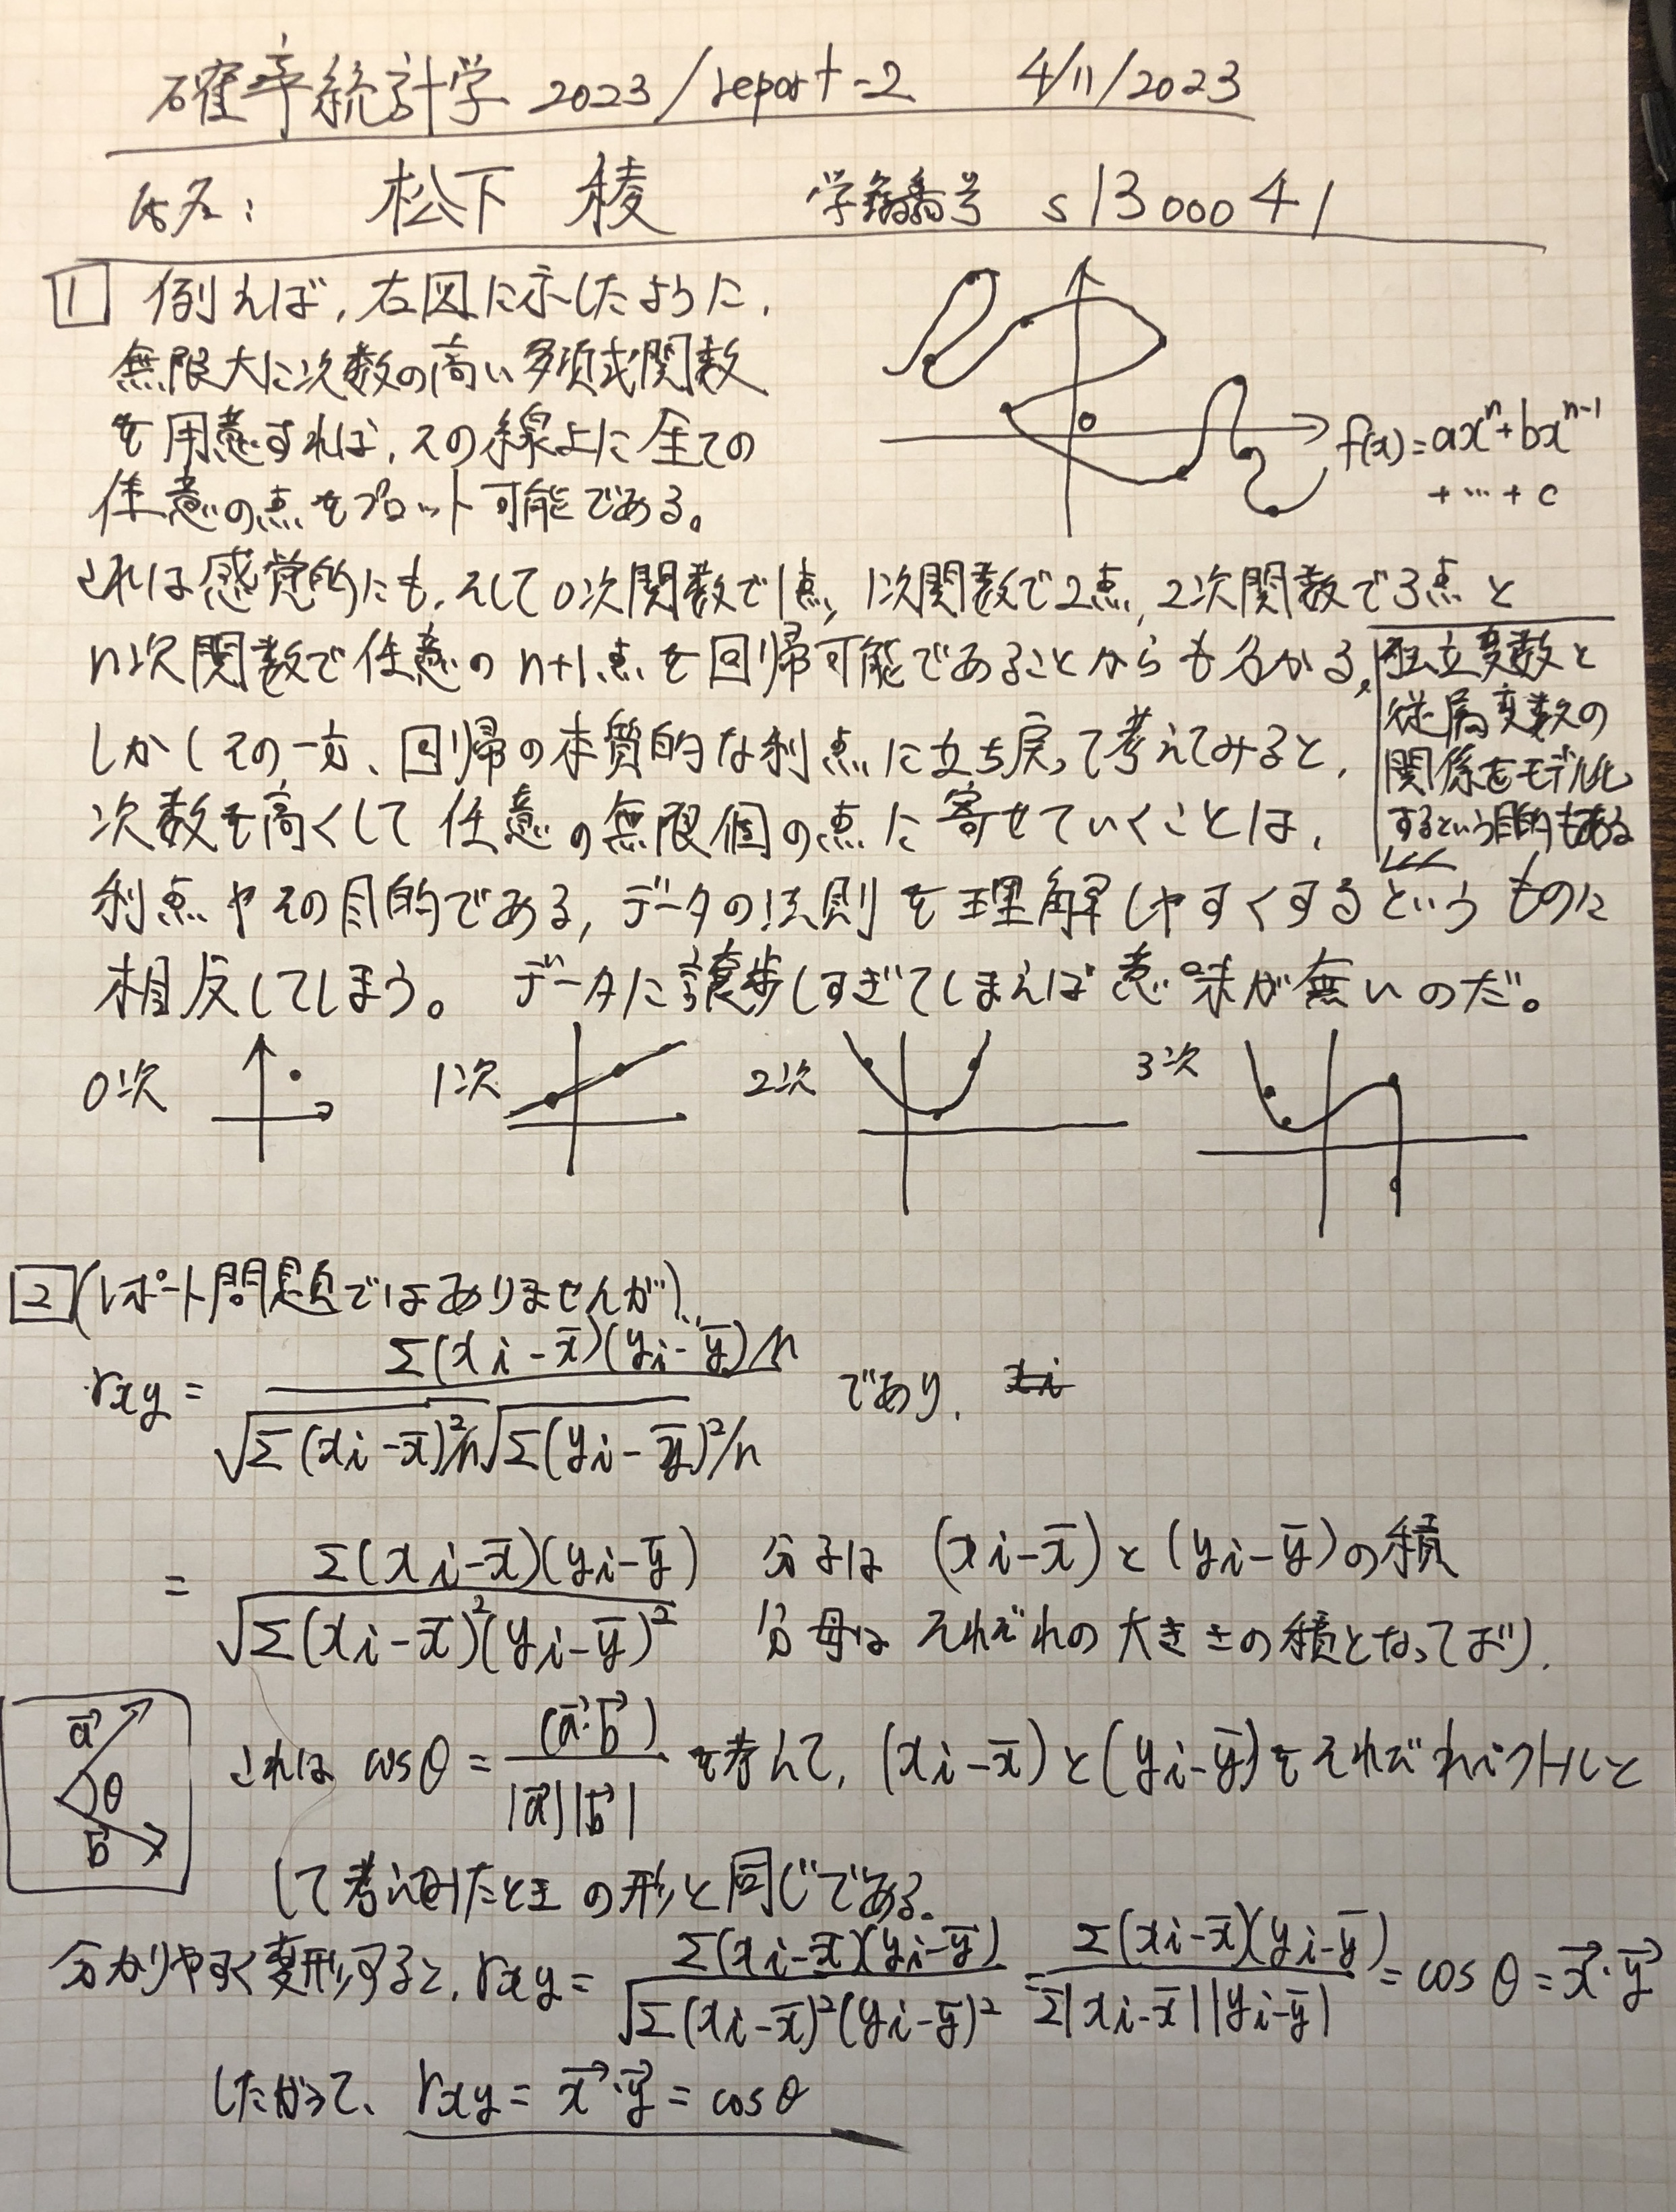 確率統計学 2023/report-2 4/11/2023
氏名: 松下 稜 学籍番号 s1300041
1 例えば,右図に示したように,
無限大に次数の高い多項式関数
を用意すれば,その線上に全ての
任意の点をプロット可能である。
0
f(x)=ax^n+bx^{n-1}
+…+c
これは感覚的にも,そして0次関数で1点,1次関数で2点,2次関数で3点と
n次関数で任意のn+1点を回帰可能であることからも分かる。
しかしその一方、回帰の本質的な利点に立ち戻って考えてみると,
次数を高くして任意の無限個の点に寄せていくことは,
利点やその目的である,データの法則を理解しやすくするというものに
相反してしまう。データに譲歩しすぎてしまえば意味が無いのだ。
独立変数と
従属変数の
関係をモデル化
するという目的もある
0次 1次 2次 3次
2 (レポート問題ではありませんが)
rxy = Σ(xi-x̄)(yi-ȳ)/n / √Σ(xi-x̄)²/n √Σ(yi-ȳ)²/n であり,
= Σ(xi-x̄)(yi-ȳ) / √Σ(xi-x̄)²(yi-ȳ)² 分子は (xi-x̄)と(yi-ȳ)の積
分母はそれぞれの大きさの積となっており,
a⃗ θ b⃗
これは cosθ = (a⃗·b⃗) / |a⃗||b⃗| を考えて,(xi-x̄)と(yi-ȳ)をそれぞれベクトルと
して考えてみたときの形と同じである。
分かりやすく変形すると,rxy = Σ(xi-x̄)(yi-ȳ) / √Σ(xi-x̄)²(yi-ȳ)² = Σ(xi-x̄)(yi-ȳ) / Σ|xi-x̄||yi-ȳ| = cosθ = x⃗·y⃗
したがって、rxy = x⃗·y⃗ = cosθ